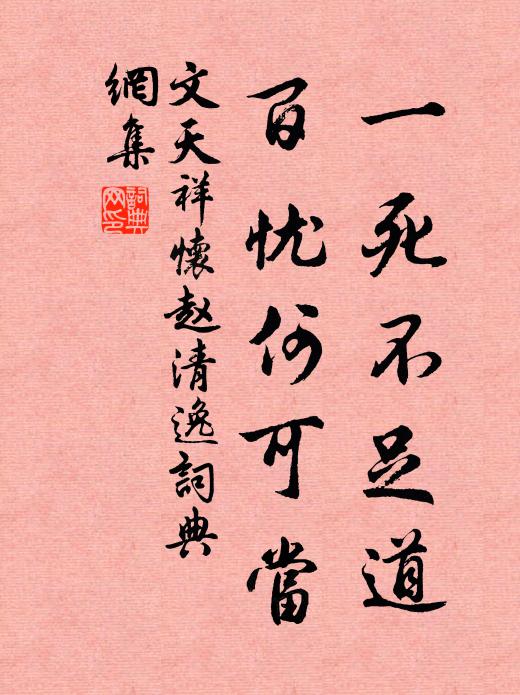 一死不足道
百忧何可當
文天祥懷赵清逸詞典
網集
詞典
网印